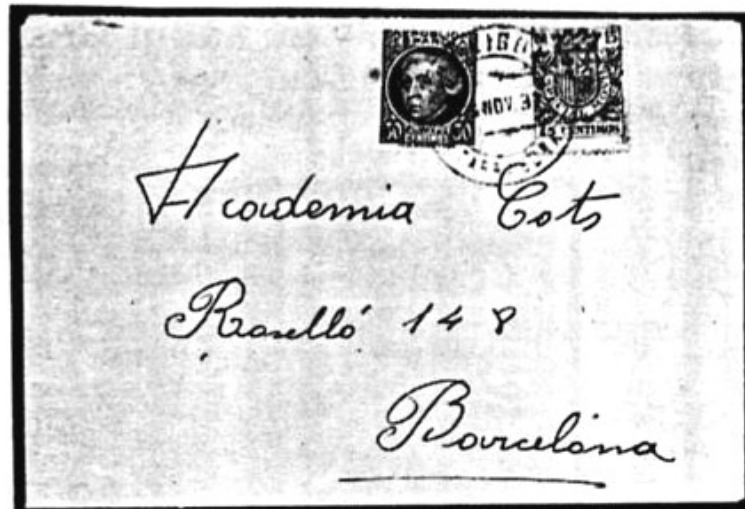 NOV 3
5 CENTIMOS
Academia Cots
Rosselló 148
Barcelona